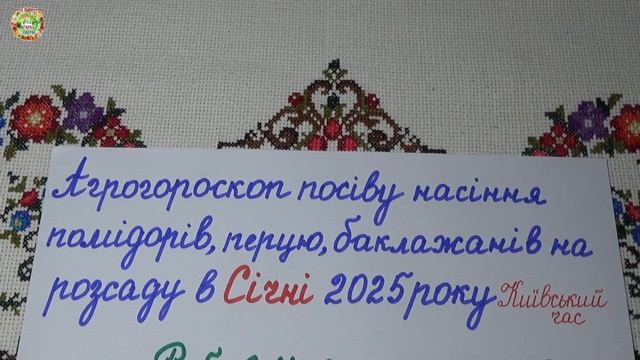 Агрогороскоп посіву насіння
помідорів, перцю, баклажанів на
розсаду в Січні 2025 року Київський
час